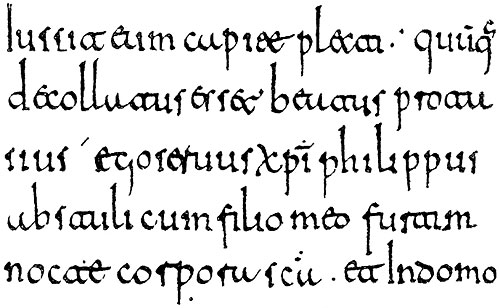 Iussit eum capite plecti · quūq;
decollatus esset beatus prota
sius ego seruus xp̅i philippus
abstuli cum filio meo furtim
nocte corpora sc̅a · et In domo